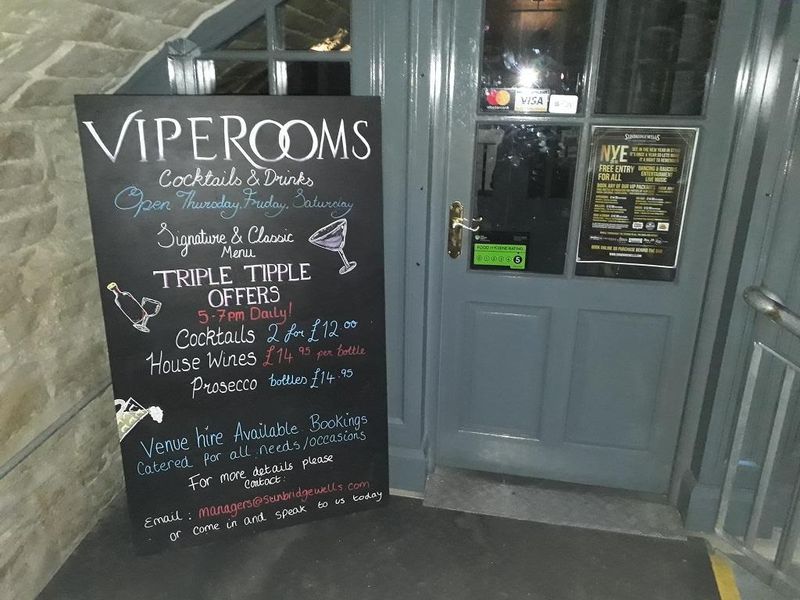 VIPEROOMS
Cocktails & Drinks
Open Thursday, Friday, Saturday
Signature & Classic
Menu
TRIPLE TIPPLE
OFFERS
5-7pm Daily!
Cocktails 2 for £12.00
House Wines £14.95 per bottle
Prosecco bottles £14.95
Venue hire Available Bookings
Catered for all needs/occasions
For more details please
contact:
Email: managers@sunbridgewells.com
or come in and speak to us today
VISA
FOOD HYGIENE RATING
5
SUNBRIDGEWELLS
NYE
SEE IN THE NEW YEAR IN STYLE
FREE ENTRY
FOR ALL
DANCING & DJS
ENTERTAINMENT
LIVE MUSIC